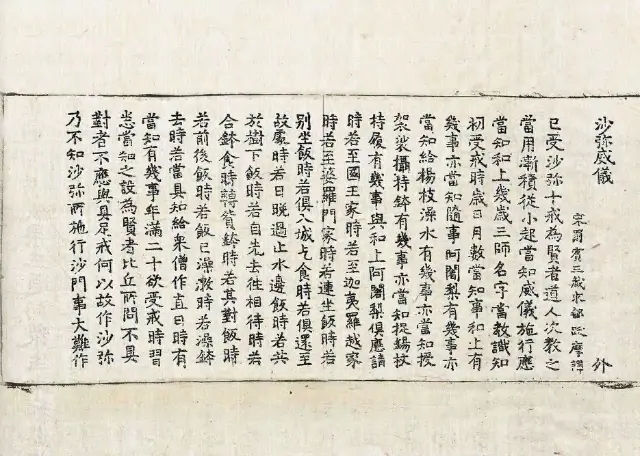 沙弥威儀　外
宋罽賓三藏求那跋摩譯
已受沙弥十戒為賢者道人次教之
當用漸積從小起當知威儀施行應
當知和上幾歲三師名字當教識知
初受戒時歲日月數當知事和上有
幾事亦當知隨事阿闍梨有幾事亦
當知給楊枝澡水有幾事亦當知授
袈裟攝持鉢有幾事亦當知捉錫杖
持履有幾事與和上阿闍梨俱應請
時若至國王家時若至迦夷羅越家
時若至婆羅門家時若連坐飯時若
別坐飯時若俱入城乞食時若俱還至
故處時若日晚過止水邊飯時若共
於樹下飯時若自先去住相待時若
合鉢食時轉貿鉢時若其對飯時
若前後飯時若飯已澡漱時若澡鉢
去時若當具知給衆僧作直日時有
當知有幾事年滿二十欲受戒時習
悉當知之設為賢者比丘所問不具
對者不應與具足戒何以故作沙弥
乃不知沙弥所施行沙門事大難作